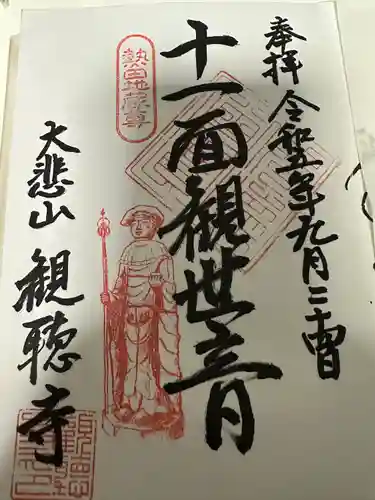 奉拝 令和五年九月二十四日
十一面観世音
熱田地蔵尊
大悲山 観聴寺